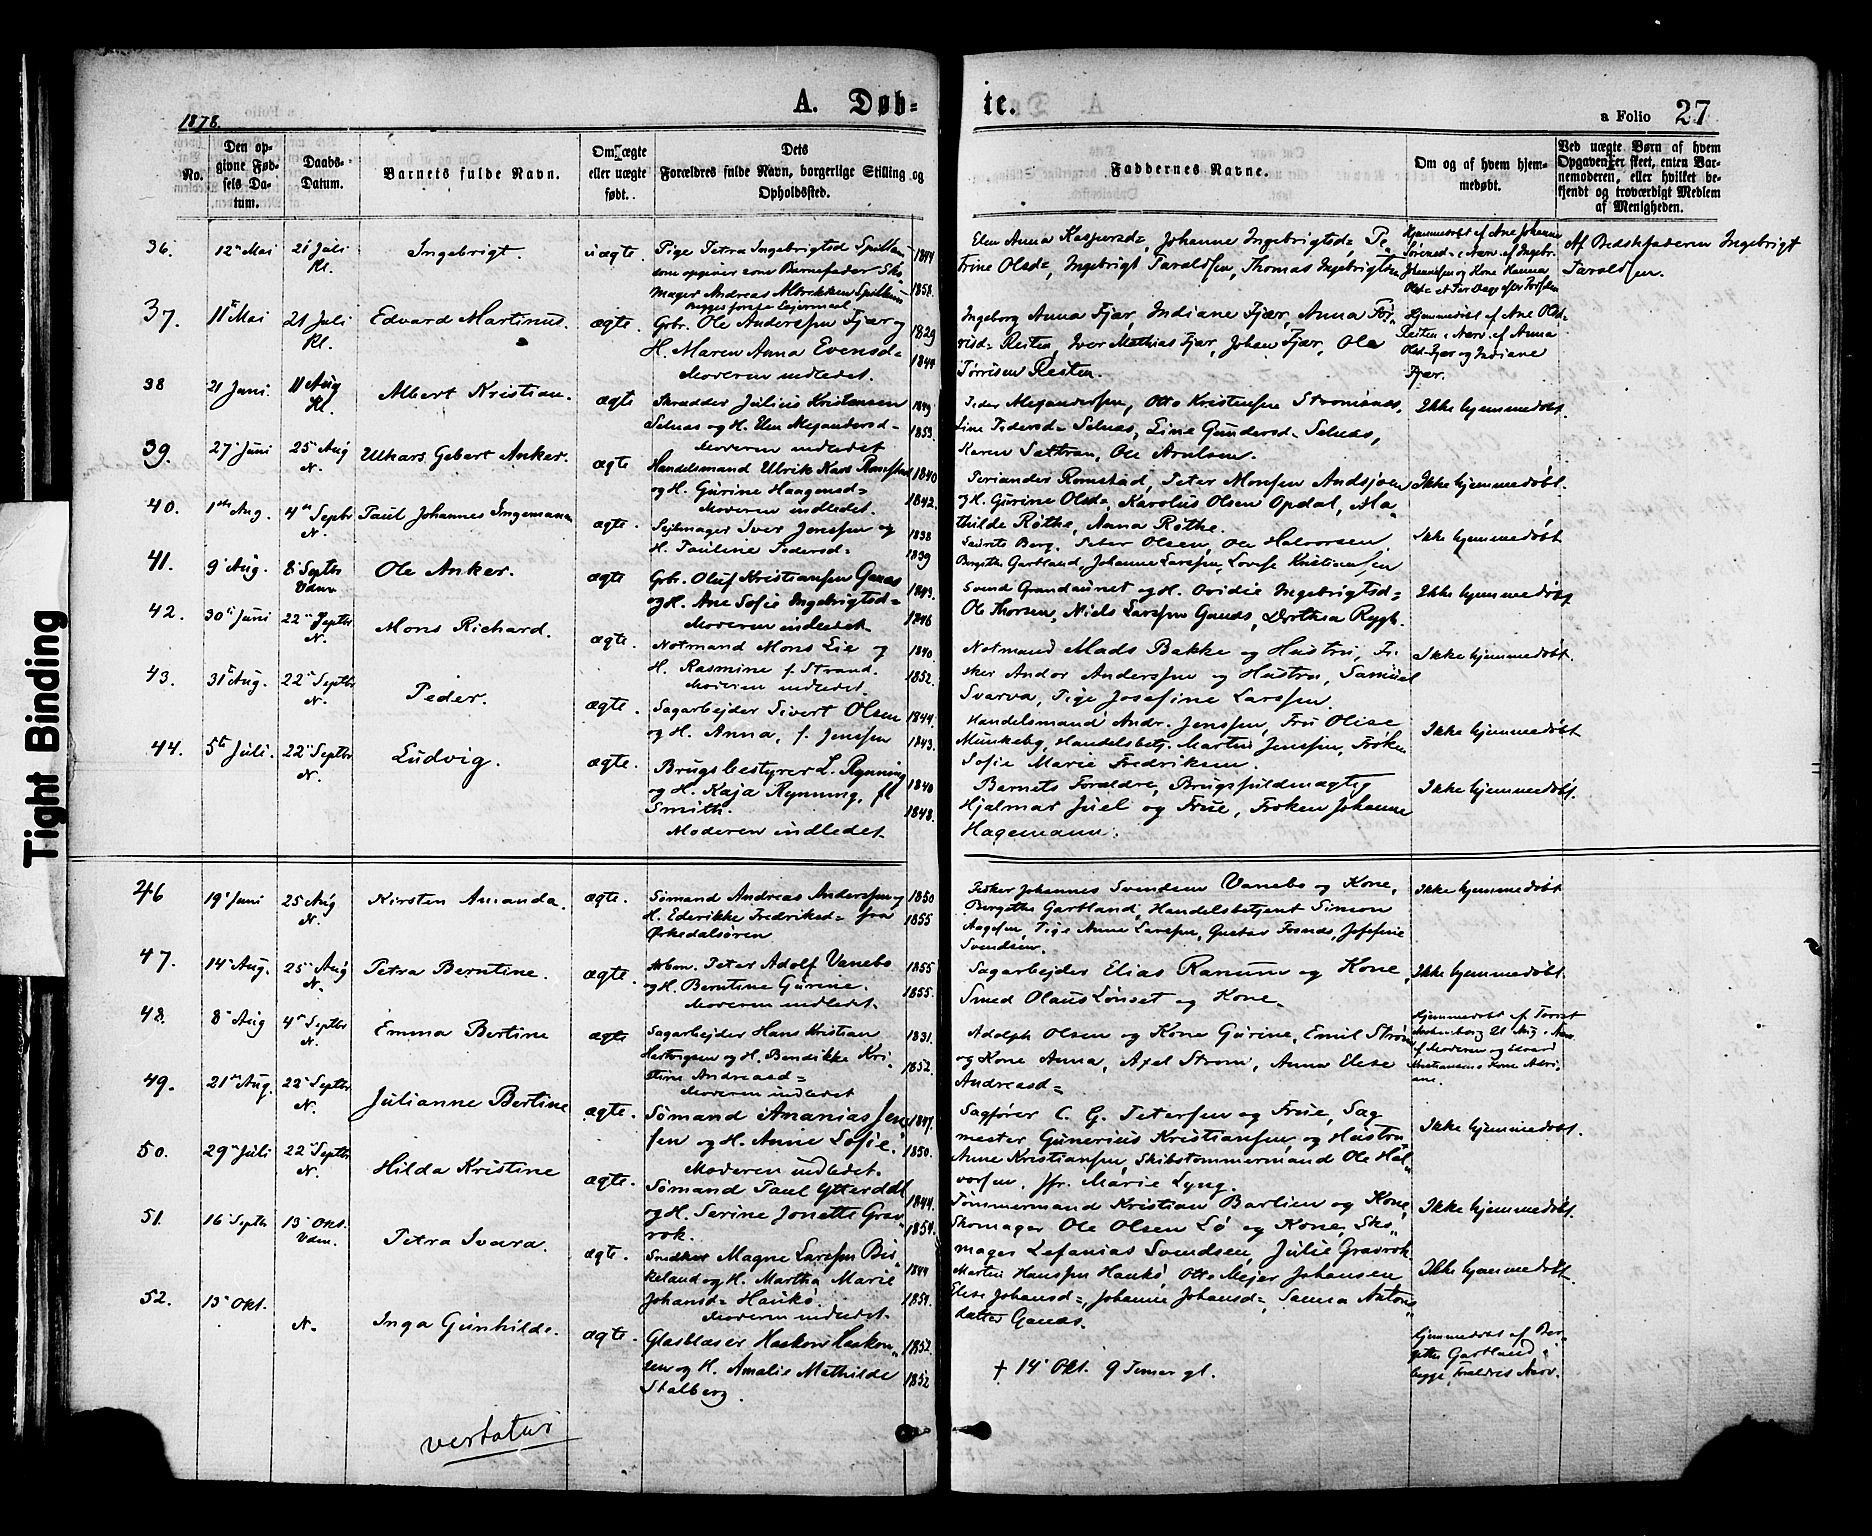 1878.
A. Døb-
te.
a Folio 27
No.
Den op-
givne Fød-
sels Da-
tum.
Daabs-
Datum.
Barnets fulde Navn.
Om ægte
eller uægte
født.
Dets
Forældres fulde Navn, borgerlige Stilling og
Opholdssted.
Faddernes Navne.
Om og af hvem hjem-
medøbt.
Ved uægte Børn af hvem
Opgaven er skeet, enten Bar-
nemoderen, eller hvilket be-
kjendt og troværdigt Medlem
af Menigheden.
36. 12 Mai 21 Juli Kl. Ingebrigt. uægte
Pige Petra Ingebrigtsd Spillum 1844
som opgiver som Barnefader Sko
mager Andreas Albrektsen Spillum 1858.
begges første Leiermaal
Elen Anna Kaspersd=, Johanne Ingebrigtsd=, Pe=
trine Olsd=, Ingebrigt Taraldsen, Thomas Ingebrigtsen
Hjemmedøbt af Ane Johanna
Af Bedstefaderen Ingebrigt
Taraldsen.
37. 11 Mai 21 Juli Kl. Edvard Martinus. ægte.
Gbr. Ole Anderssen Fjær og 1829
H. Maren Anna Evensd= 1844
Moderen indledet.
Ingeborg Anna Fjær, Indiane Fjær, Anna Tør-
risd= Resten, Iver Mathias Fjær, Johan Fjær, Ole
Tørrisen Resten.
Hjemmedøbt af Ane Ols-
Resten, Nærv. af Anna
Olsd= Fjær og Indiane
Fjær.
38 21 Juni. 11 Aug Kl. Albert Kristian. ægte
Skrædder Julius Kristensen 1849
Selnæs og H. Elen Mejandersd= 1853.
Moderen indledet
Peder Mejanderssen, Otto Kristensen Strømsnæs,
Line Pedersd= Selnæs, Line Gundersd= Selnæs,
Karen Sættran, Ole Arntsen.
Ikke hjemmedøbt.
39. 27 Juni 25 Aug N. Ulkars Gebert Anker. ægte
Handelsmand Ulrik Kars 1840
og H. Gurine Haagensd= 1842.
Moderen indledet.
Periander Romstad, Peter Monsen Andsjøen
og H. Gurine Olsd=, Karolus Olsen Opdal, Ma
thilde Røthe, Anna Røthe.
Ikke hjemmedøbt.
40. 1ste Aug. 4de Septbr N. Paul Johannes Ingemann ægte
Seilmager Iver Jenssen og 1838
H. Pauline Pedersd= 1839
Laurits Berg, Peter Olsen, Ole Halvorsen,
Bergithe Gartland, Johanne Larssen, Lovise Kristiansen
Ikke hjemmedøbt
41. 9 Aug. 8 Septbr Vdm Ole Anker. ægte
Gbr. Oluf Kristiansen Ganas 1843.
og H. Ane Sofie Ingebrigtsd= 1846
Moderen indledet.
Svend Grandaunet og H. Ovidie Ingebrigtsd=
Ole Thorsen, Niels Larssen Ganæs, Dorthea Rygh.
Ikke hjemmedøbt
42. 30te Juni 22 Septbr N. Mons Richard. ægte.
Notmand Mons Lie og 1840.
H. Rasmine f. Strand. 1852.
Moderen indledet.
Notmand Mads Bakke og Hustru, Fi-
sker Andor Anderssen og Hustru, Samuel
Svarva, Pige Josefine Larssen.
Ikke hjemmedøbt.
43. 31te Aug. 22 Septbr N. Peder. ægte.
Sagarbejder Sivert Olsen 1844.
og H. Anna, f. Jenssen 1843.
Handelsmand Andr. Jenssen, Fru Olise
Munkeby, Handelsbetj. Martin Jenssen, Frøken
Sofie Marie Fredriksen.
Ikke hjemmedøbt
44. 5te Juli. 22 Septbr N. Ludvig. ægte.
Brugsbestyrer L. Rynning 1840
og H. Kaja Rynning, f. 1848.
Smith.
Moderen indledet.
Barnets Forældre, Brugsfuldmægtig
Hjalmar Juel og Frue, Frøken Johanne
Hagemann.
Ikke hjemmedøbt.
46 19 Juni 25 Aug N. Kirsten Amanda. ægte.
Sømand Andreas Anderssen og 1850
H. Ederikke Fredriksd= fra 1855
Ørkedalsøren
Fisker Johannes Svendsen Vanebo og Kone,
Bergithe Gartland, Handelsbetjent Simon
Aagesen, Pige Anne Larssen, Gustav Fosnæs, Josefine
Svendsen.
Ikke hjemmedøbt
47. 14 Aug. 25 Aug N. Petra Berntine. ægte.
Arbm. Peter Adolf Vanebo 1855
og H. Berntine Gurine. 1855.
Moderen indledet.
Sagarbejder Elias Ranum og Kone,
Smed Olaus Lønset og Kone.
Ikke hjemmedøbt.
48. 8 Aug 4de Septbr N. Emma Bertine ægte
Sagarbejder Hans Kristian 1831.
Hartvigsen og H. Bendikke Kri- 1852.
stine Andreasd=
Moderen indledet
Adolph Olsen og Kone Gurine, Emil Strøm
og Kone Anna, Axel Strøm, Anna Elese
Andreasd=
49. 21 Aug. 22 Septbr N. Julianne Bertine ægte.
Sømand Ananias Jen 1847.
sen og H. Anne Sofie. 1850.
Moderen indledet.
Sagfører C. G. Petersen og Frue, Sag
mester Gunerius Kristiansen og Hustru
Anne Kristiansen, Skibstømmermand Ole Hal-
vorsen, Jfr. Marie Lyng.
Ikke hjemmedøbt.
50. 29 Juli 22 Septbr N. Hilda Kristine ægte.
Sømand Paul Ytterdal 1844.
og H. Serine Jonette Grav= 1854.
rok.
Tømmermand Kristian Barlien og Kone,
Skomager Ole Olsen Lø og Kone, Sko
mager Zefanias Svendsen, Julie Gravrok
Ikke hjemmedøbt.
51. 16 Septbr 13 Okt. Vdm. Petra Ivara. ægte.
Snedker Magne Larssen Bir 1849
keland og H. Martha Marie 1854.
Johansd= Haukø.
Moderen indledet.
Martin Hanssen Haukø, Otto Mejer Johansen
Elise Johansd=, Johanne Johansd=, Sanna Antons
datter Ganæs.
Ikke hjemmedøbt.
52. 13 Okt. N. Inga Gunhilde. ægte.
Glasblæser Haakon Haakon= 1852.
sen og H. Amalie Mathilde 1852
Stalberg.
† 14 Okt. 9 Timer gl.
hjemmedøbt af Ber-
githe Gartland i
begge Forældres Nærv.
vertatur
Tight Binding